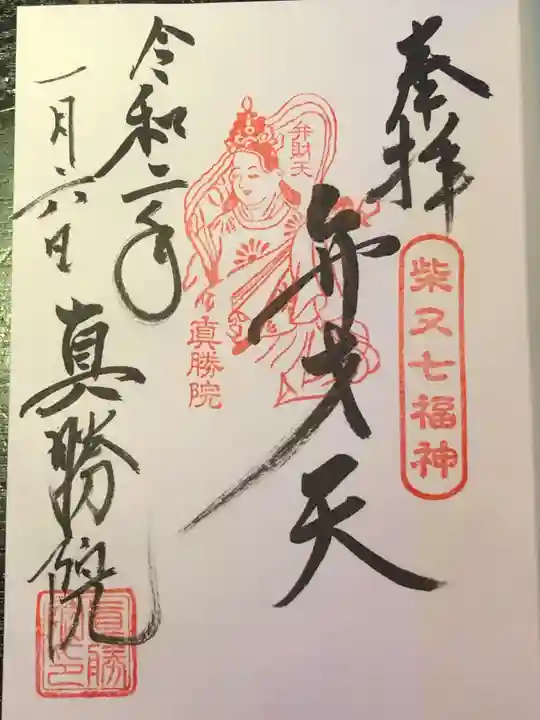 奉拝
柴又七福神
弁才天
弁財天
真勝院
令和二年
一月六日
真勝院